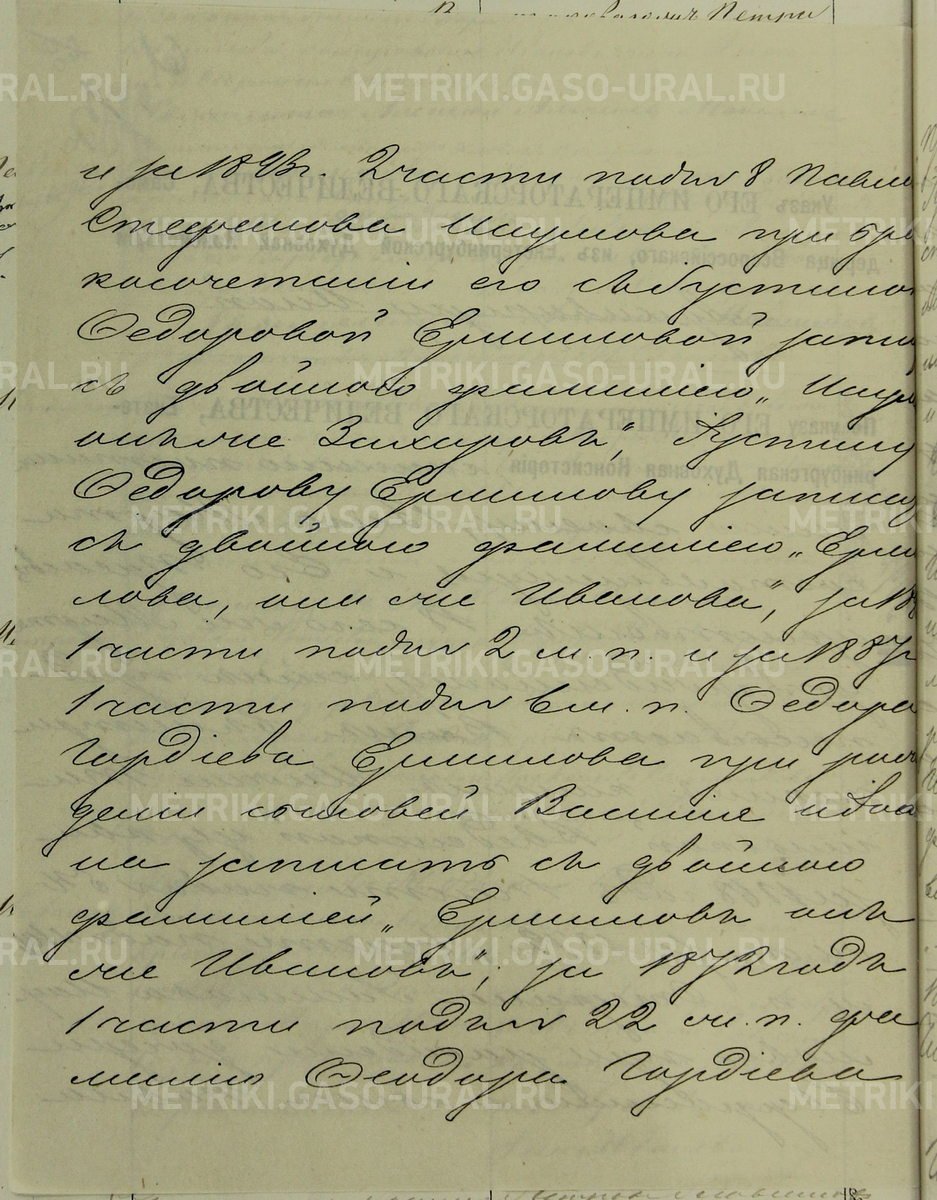 METRIKI.GASO-URAL.RU
и за 189 г. 2 части подъ № 8 Павла
Стефанова Исумова при бра
косочетаніи его съ Густиною
Ѳедоровой Ермиловой запис
съ двойною фамиліею „Исум
онъ же Захаровъ“, Іустину
Ѳедорову Ермилову записа
съ двойною фамиліею „Ерми
лова, они же Иванова“, за 188
1 части подъ № 2 м. п. и за 1887 г
1 части подъ № 6 м. п. Ѳедора
Гордіева Ермилова при рож
деніи сыновей Василія и Іоа
на записать съ двойною
фамиліей „Ермиловъ онъ
же Ивановъ“, за 1872 годъ
1 части подъ № 22 м. п. фа
милію Ѳеодора Гордіева